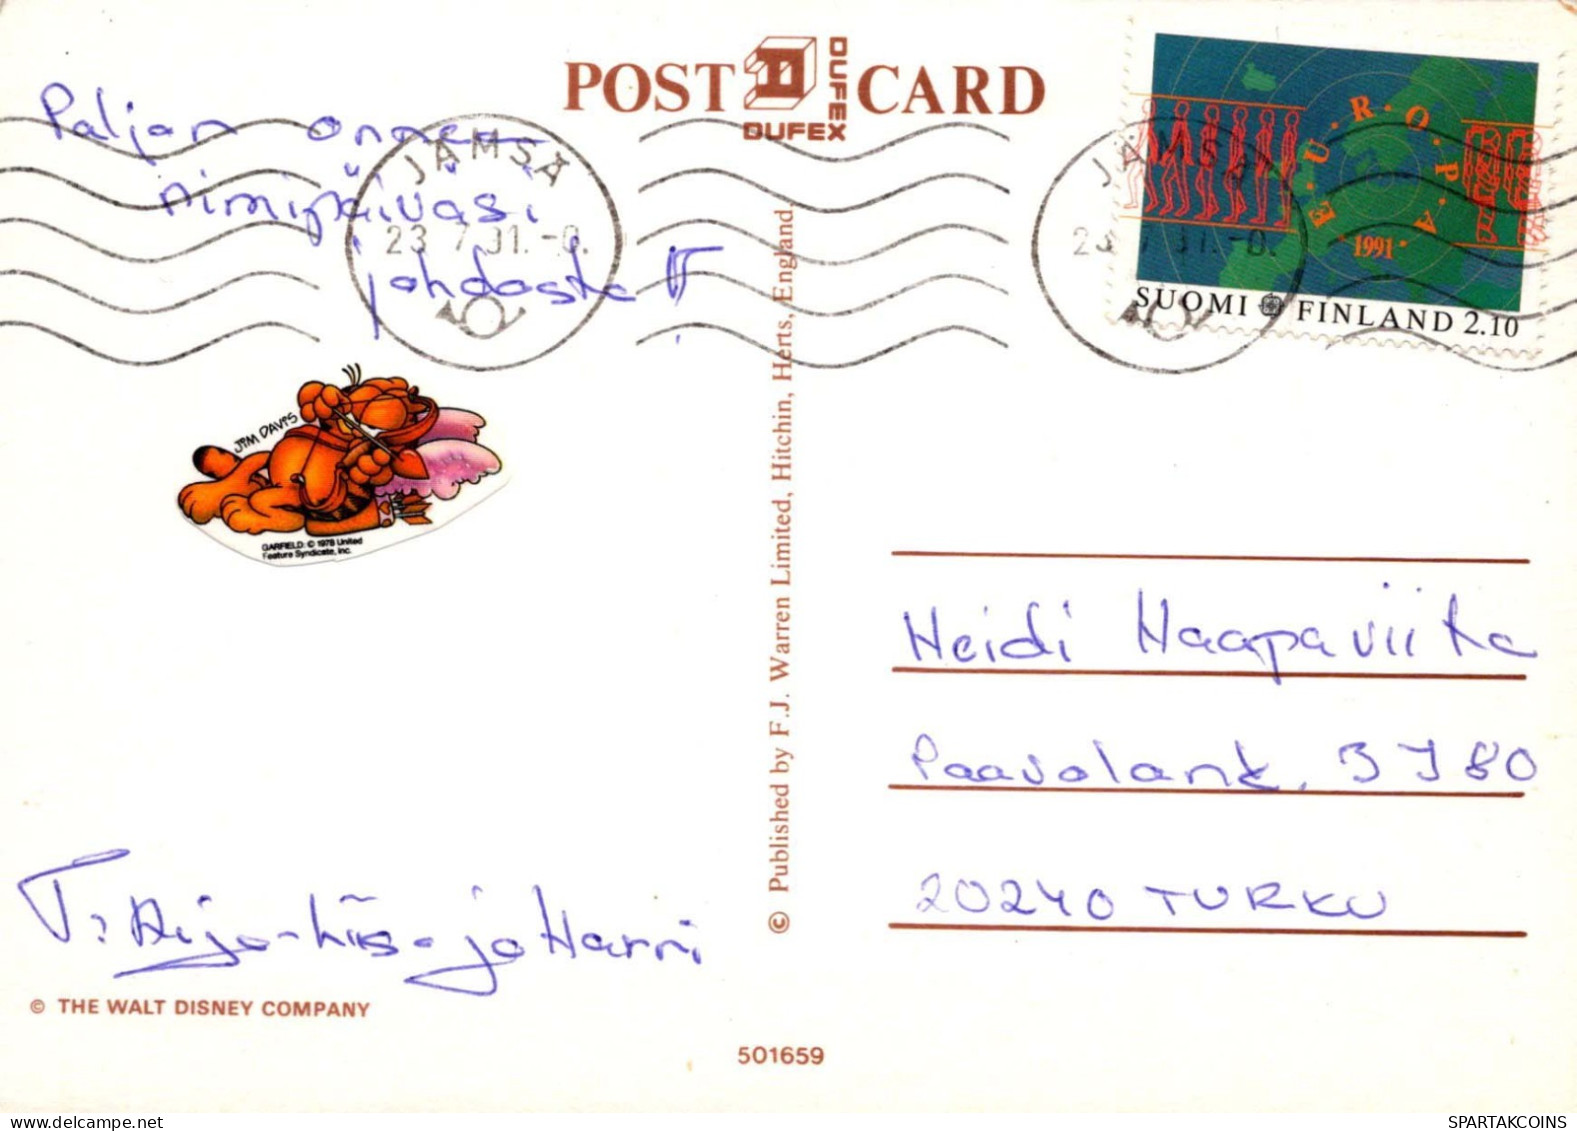 POST CARD
DUFEX
DUFEX
Paljon onnea
nimipäiväsi
johdosta
JÄMSÄ
23 7 91.-0.
JÄMSÄ
E.U.R.O.P.A
1991
SUOMI FINLAND 2.10
JIM DAVIS
GARFIELD: © 1978 United
Feature Syndicate, Inc.
© Published by F.J. Warren Limited, Hitchin, Herts, England.
Heidi Haapaviita
Paavolank. 3 J 80
20240 TURKU
T: Aija-Liisa ja Harri
© THE WALT DISNEY COMPANY
501659
SPARTAKCOINS